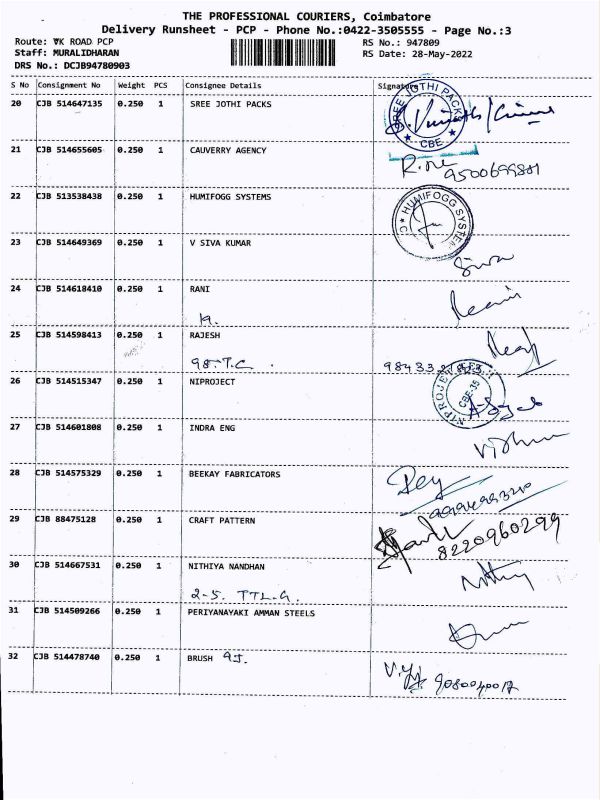 THE PROFESSIONAL COURIERS, Coimbatore
Delivery Runsheet - PCP - Phone No.:0422-3505555 - Page No.:3
Route: VK ROAD PCP
RS No.: 947809
Staff: MURALIDHARAN
RS Date: 28-May-2022
DRS No.: DCJB94780903
S No Consignment No Weight PCS Consignee Details Signature
20 CJB 514647135 0.250 1 SREE JOTHI PACKS
SREE JOTHI PACK
CBE
21 CJB 514655605 0.250 1 CAUVERRY AGENCY
22 CJB 513538438 0.250 1 HUMIFOGG SYSTEMS
HUMIFOGG SYSTEM
23 CJB 514649369 0.250 1 V SIVA KUMAR
Siva
24 CJB 514618410 0.250 1 RANI
19.
25 CJB 514598413 0.250 1 RAJESH
98-T.C.
26 CJB 514515347 0.250 1 NIPROJECT
CBE-35
27 CJB 514601808 0.250 1 INDRA ENG
28 CJB 514575329 0.250 1 BEEKAY FABRICATORS
29 CJB 88475128 0.250 1 CRAFT PATTERN
8220960299
30 CJB 514667531 0.250 1 NITHIYA NANDHAN
2-5. TTL.G.
31 CJB 514509266 0.250 1 PERIYANAYAKI AMMAN STEELS
32 CJB 514478740 0.250 1 BRUSH 9J.